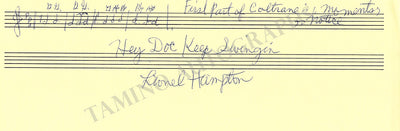 First Part of Coltrane's Moments
Notice
Hey Doc Keep Swingin
Lionel Hampton
TAMINO AUTOGRAPHS